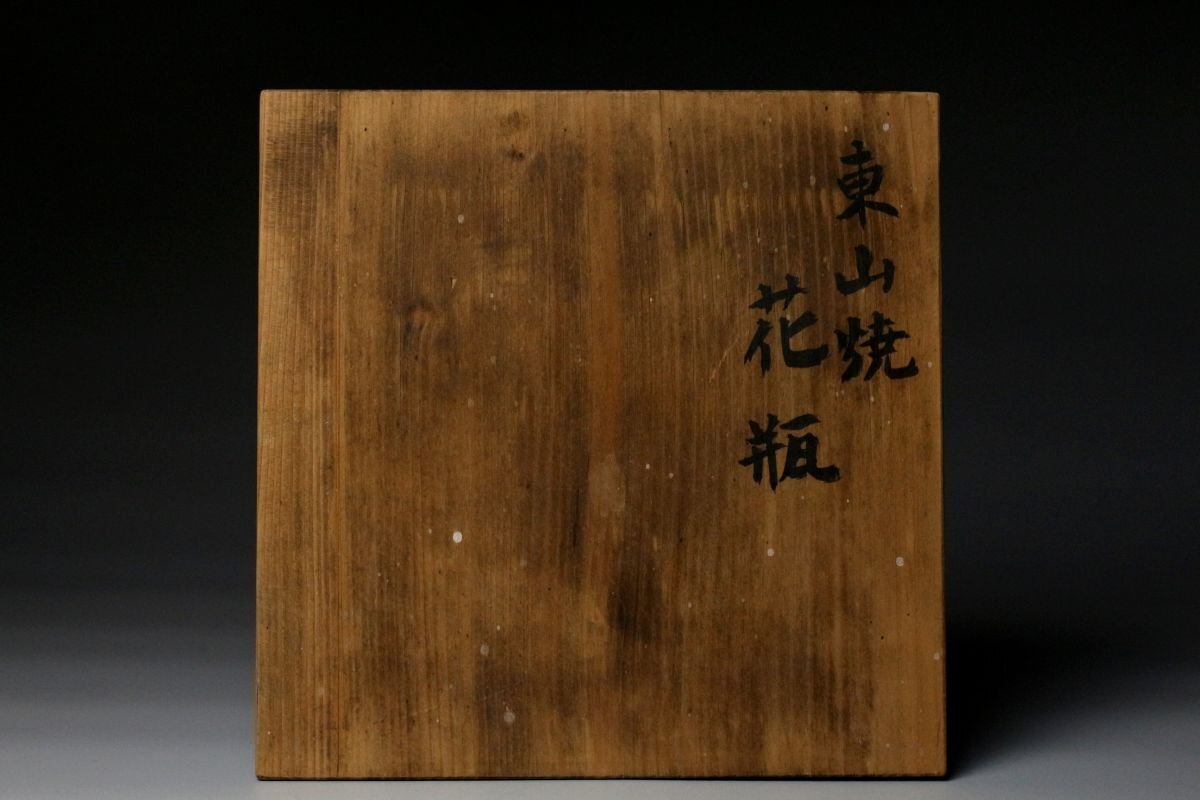 東山焼
花瓶